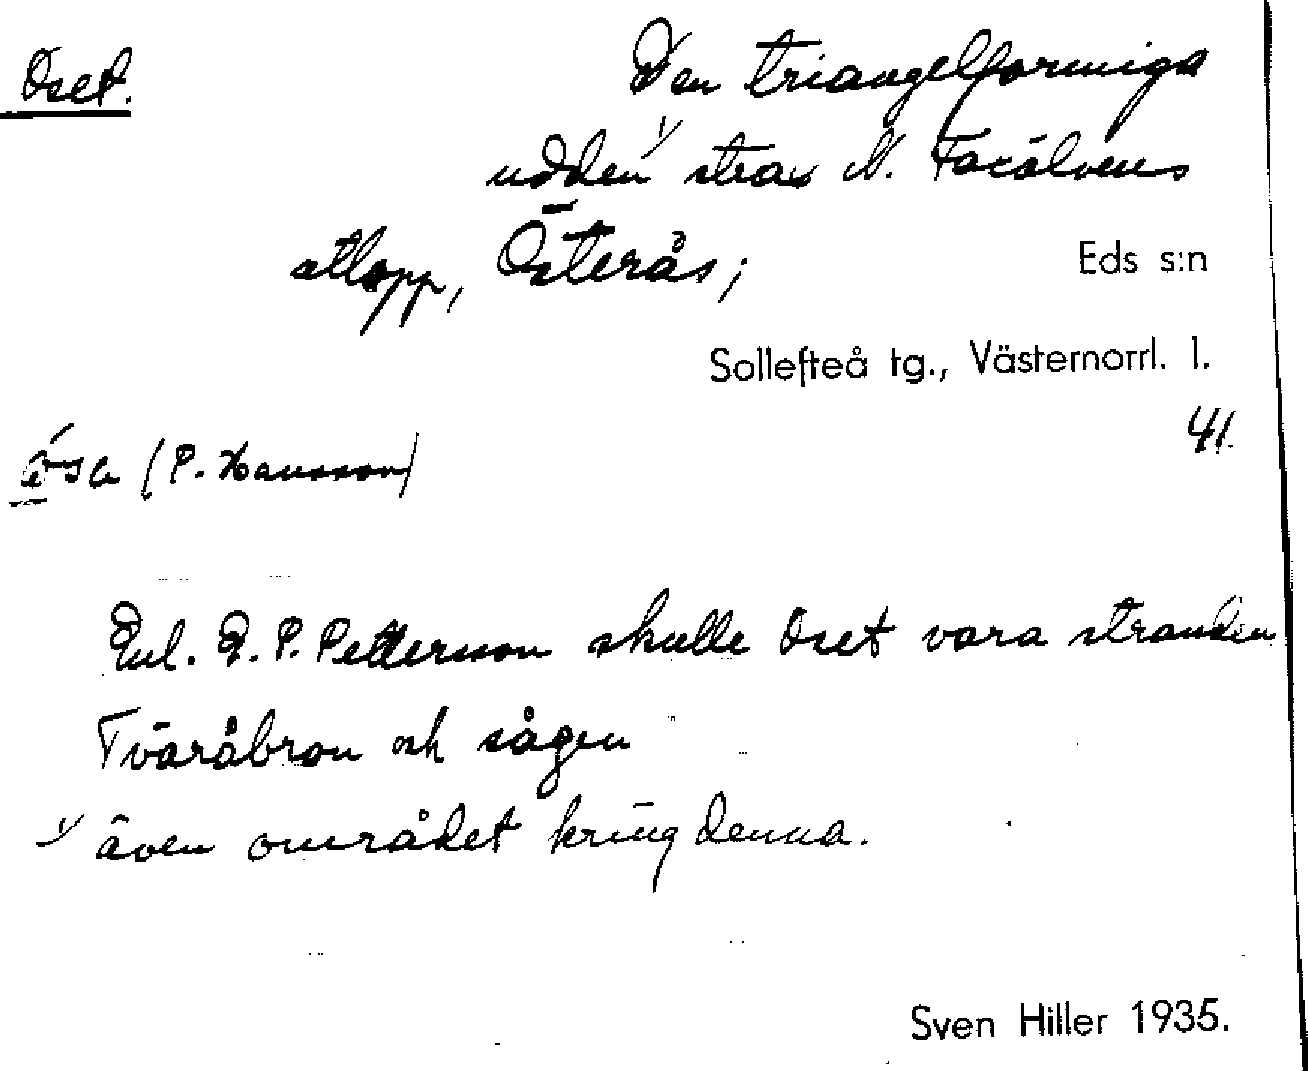 Oset.
Den triangelformiga
udden 1/ strax N. Faxälvens
utlopp, Österås;
Eds s:n
Sollefteå tg., Västernorrl. l.
41.
(P. Hansson)
Enl. E. P. Petterson skulle Oset vara stranden
Tväråbron och sågen
1/ även området kring denna.
Sven Hiller 1935.